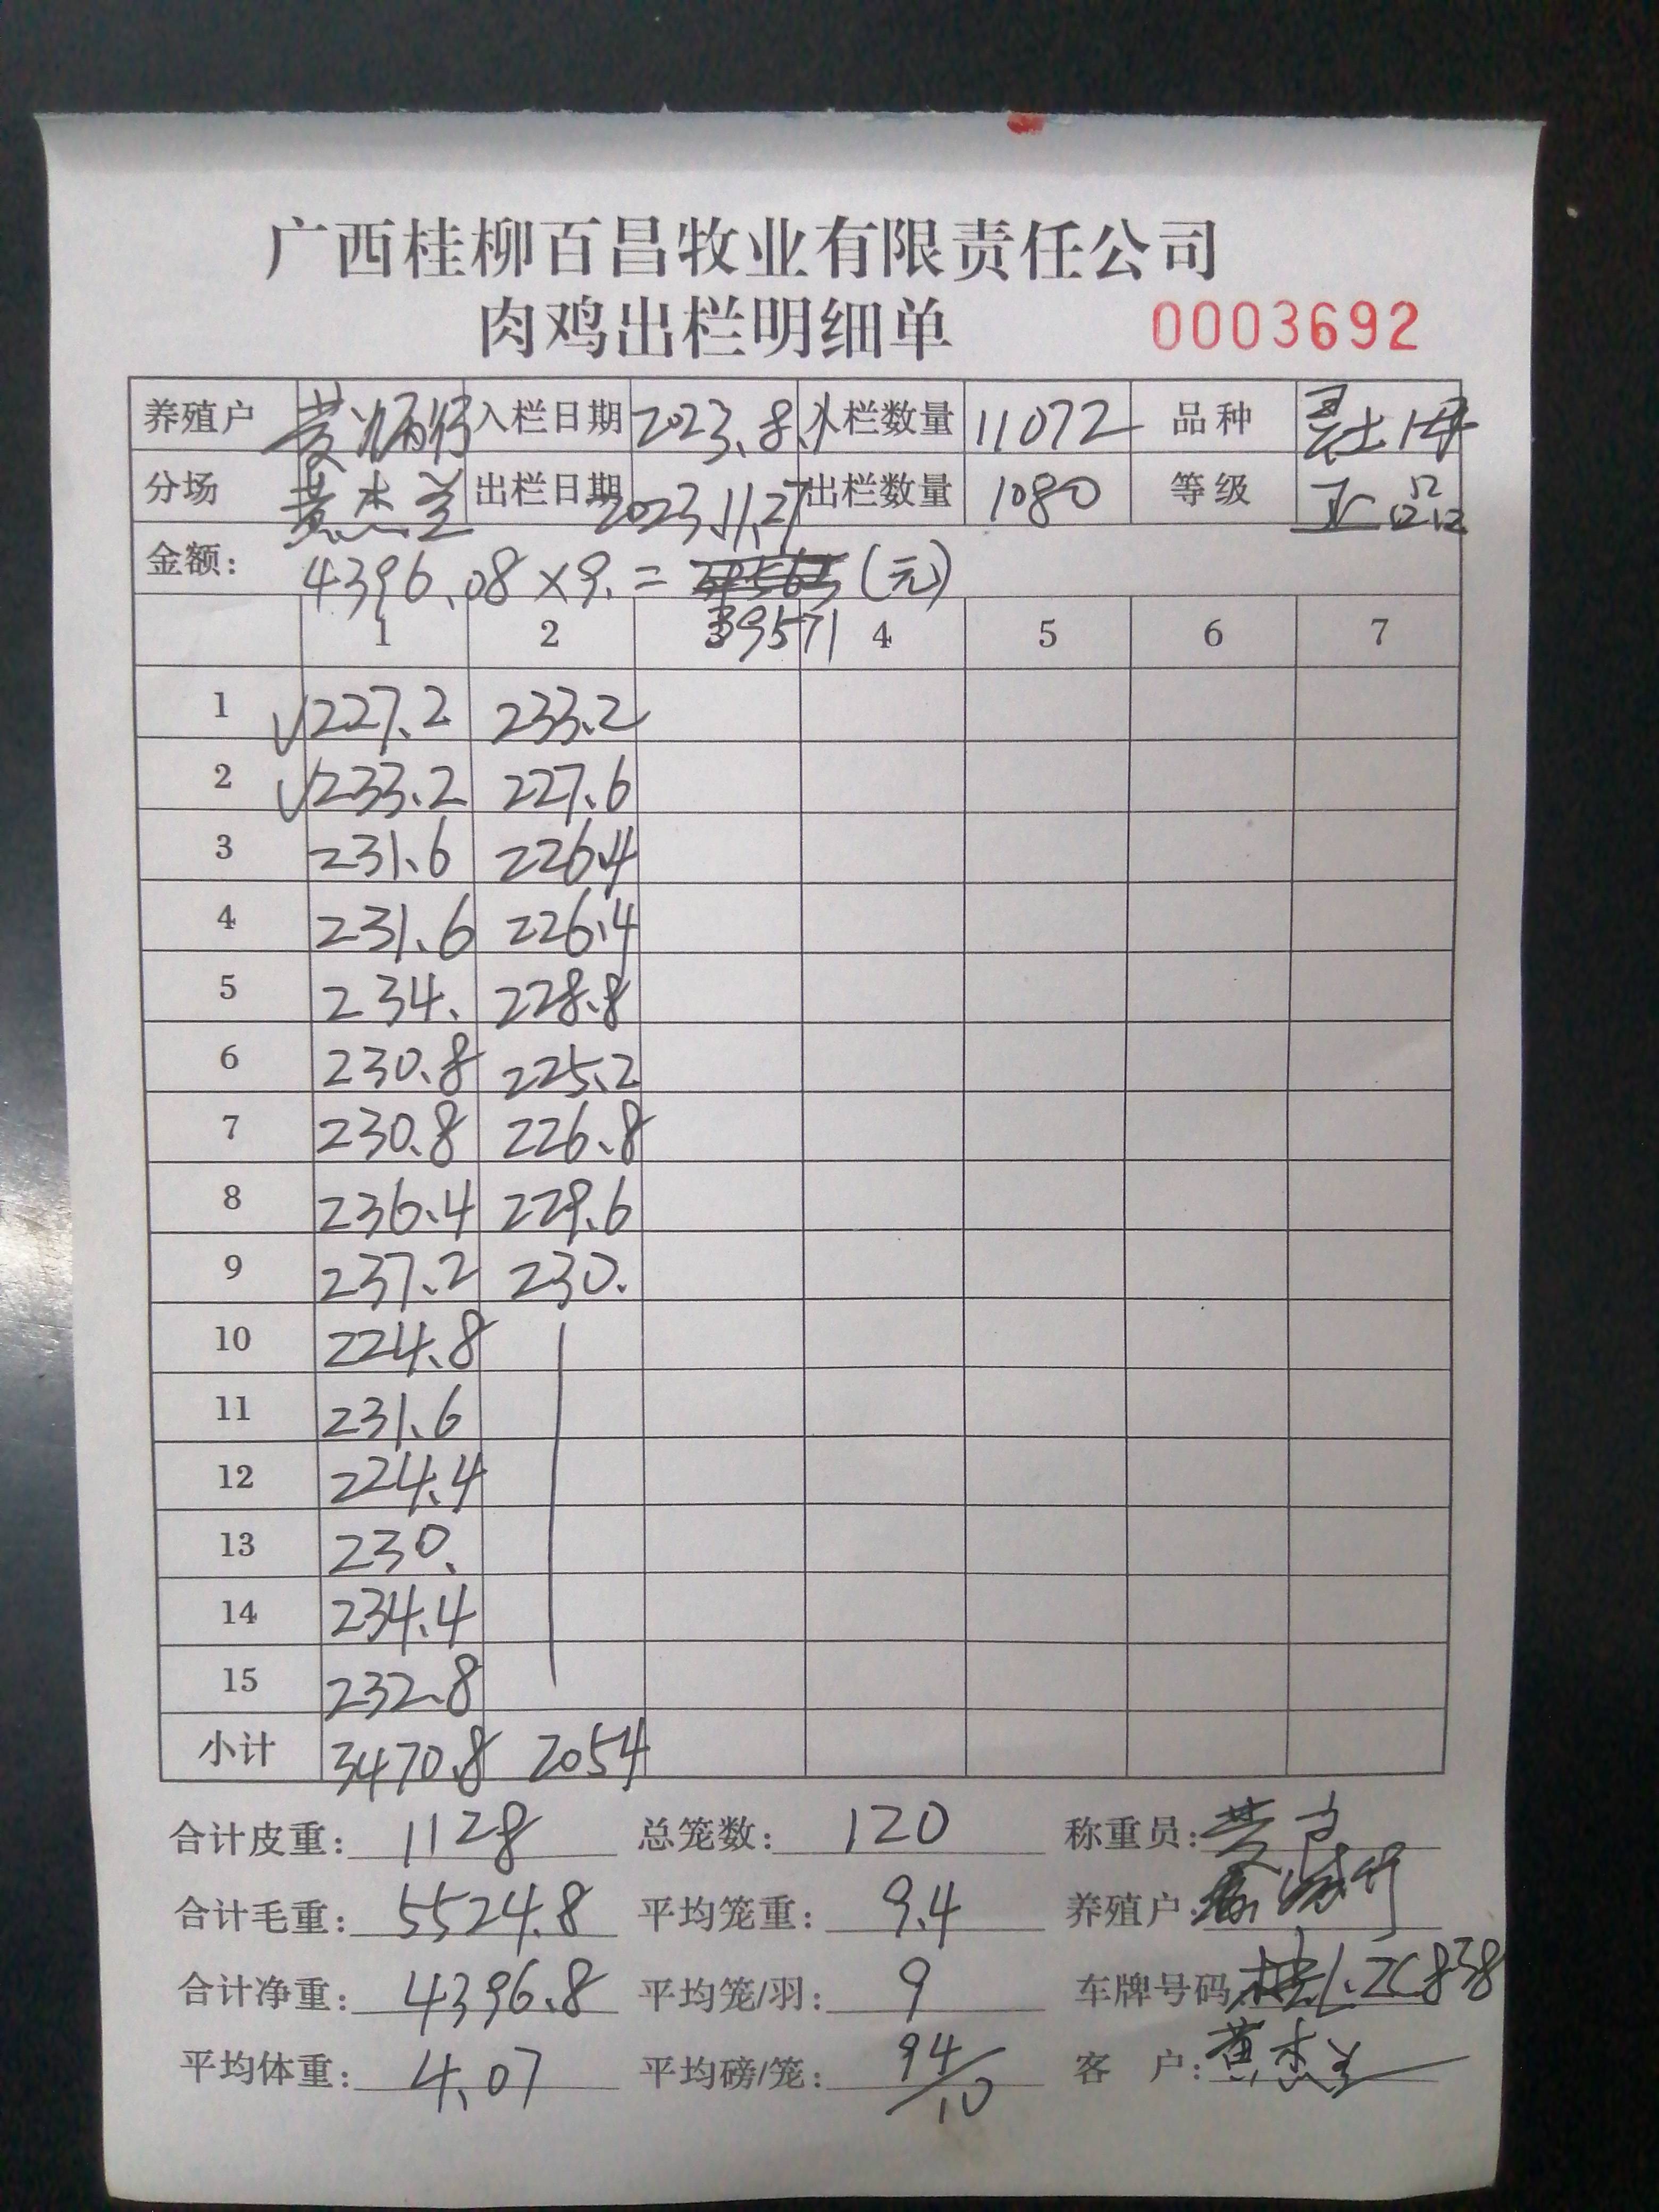 广西桂柳百昌牧业有限责任公司
肉鸡出栏明细单 0003692
养殖户 黄炳 入栏日期 2023.8.1 入栏数量 11072 品种 灵土1母
分场 黄杰兰 出栏日期 2023.11.27 出栏数量 1080 等级 正品
金额: 4396.08×9.= (元)
39571
1 2 3 4 5 6 7
1 √227.2 233.2
2 √233.2 227.6
3 231.6 226.4
4 231.6 226.4
5 234. 228.8
6 230.8 225.2
7 230.8 226.8
8 236.4 229.6
9 237.2 230.
10 224.8
11 231.6
12 224.4
13 230.
14 234.4
15 232.8
小计 3470.8 2054
合计皮重: 1128 总笼数: 120 称重员:
合计毛重: 5524.8 平均笼重: 9.4 养殖户:
合计净重: 4396.8 平均笼/羽: 9 车牌号码 桂L.ZC838
平均体重: 4.07 平均磅/笼: 94/10 客 户: 黄杰兰